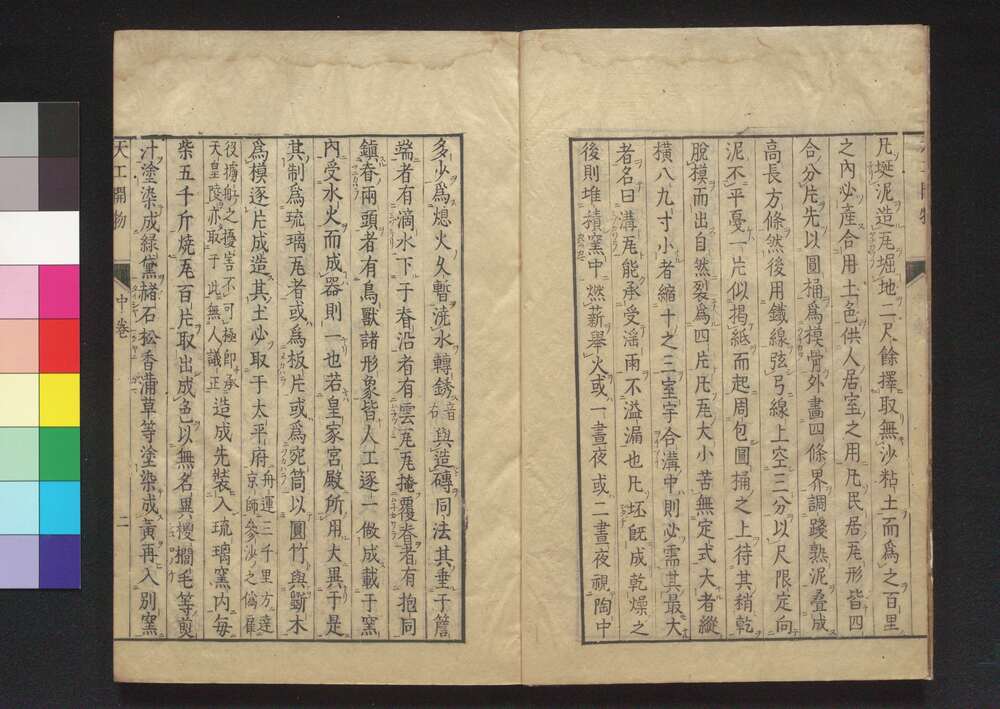 凡埏泥造瓦掘地二尺餘擇取無沙粘土而爲之百里
之內必產合用土色供人居室之用凡民居瓦形皆四
合分片先以圓桶爲模骨外畫四條界調踐熟泥疊成
高長方條然後用鐵線弦弓線上空三分以尺限定向
泥不平戛一片似揭紙而起周包圓桶之上待其稍乾
脫模而出自然裂爲四片凡瓦大小苦無定式大者縱
橫八九寸小者縮十之三室宇合溝中則必需其最大
者名曰溝瓦能承受滛雨不溢漏也凡坯旣成乾燥之
後則堆積窯中燃薪舉火或一晝夜或二晝夜視陶中
多少爲熄火久暫澆水轉銹音右與造磚同法其垂于簷
端者有滴水下于脊沿者有雲瓦瓦掩覆脊者有抱同
鎮脊兩頭者有鳥獸諸形象皆人工逐一做成載于窯
內受水火而成器則一也若皇家宮殿所用大異于是
其制爲琉璃瓦者或爲板片或爲宛筒以圓竹與斲木
爲模逐片成造其土必取于太平府舟運三千里方達京師參沙之僞雇
役擄舡之擾害不可極卽承天皇陵亦取于此無人議正造成先裝入琉璃窯內每
柴五千斤燒瓦百片取出成色以無名異椶櫚毛等煎
汁塗染成綠黛赭石松香蒲草等塗染成黃再入別窯
天工開物
中卷
二